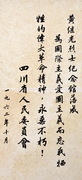 黄继光烈士纪念馆落成
为国际主义爱国主义而忘我牺
牲的伟大革命精神，永垂不朽！
四川省人民委员会
一九六二年十月